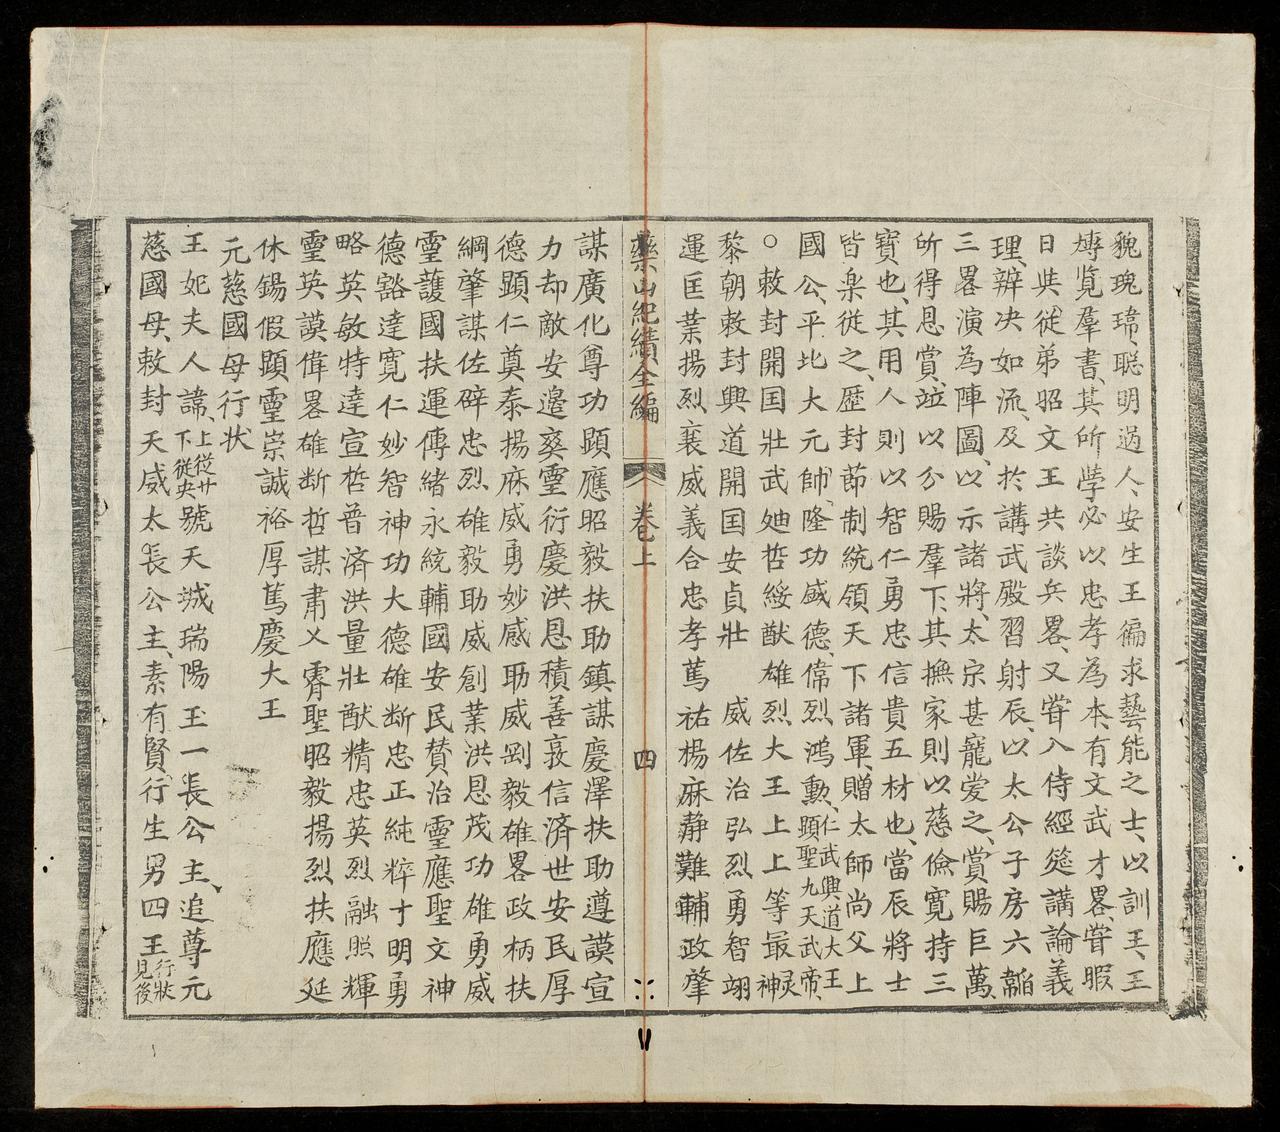 貌瑰瑋、聰明過人、安生王徧求藝能之士、以訓王、王
博覧羣書、其所學、必以忠孝為本、有文武才畧、甞暇
日與從弟昭文王共談兵畧、又甞入侍經筵講論義
理、辨决如流、及於講武殿習射辰、以太公子房六韜
三畧演為陣圖、以示諸將、太宗甚寵爱之、賞賜巨萬、
所得恩賞、竝以分賜羣下、其撫家則以慈儉寛持三
寳也、其用人則以智仁勇忠信貴五材也、當辰將士
皆樂從之、歷封節制統領天下諸軍、贈太師尚父上
國公、平北大元帥、隆功盛德、偉烈鴻勲、仁武興道大王
顕聖九天武帝、
○敕封開国壯武廸哲綏猷雄烈大王上上等最神灵
黎朝敕封興道開国安貞壯 威佐治弘烈勇智翊
運匡業揚烈襄威義合忠孝篤祐楊庥静難輔政肇
藥山紀績全編 卷上 四
謀廣化尊功顕應昭毅扶助鎮謀慶澤扶助遵謨宣
力却敵安邉奏霊衍慶洪恩積善哀信済世安民厚
德顕仁奠泰揚庥威勇妙感助威剛毅雄畧政柄扶
綱肇謀佐辟忠烈雄毅助威創業洪恩茂功雄勇威
霊護國扶運傳緒永統輔國安民賛治霊應聖文神
德豁達寛仁妙智神功大德雄断忠正純粹寸明勇
略英敏特達宣哲普済洪量壯猷精忠英烈融照輝
霊英謨偉畧雄断哲謀肅乂睿聖昭毅揚烈扶應延
休錫假顕霊崇誠裕厚篤慶大王
元慈國母行状
王妃夫人諱、上從廿
下從央號天城瑞陽玉一長公主、追尊元
慈國母、敕封天威太長公主、素有賢行、生男四王行狀
見後